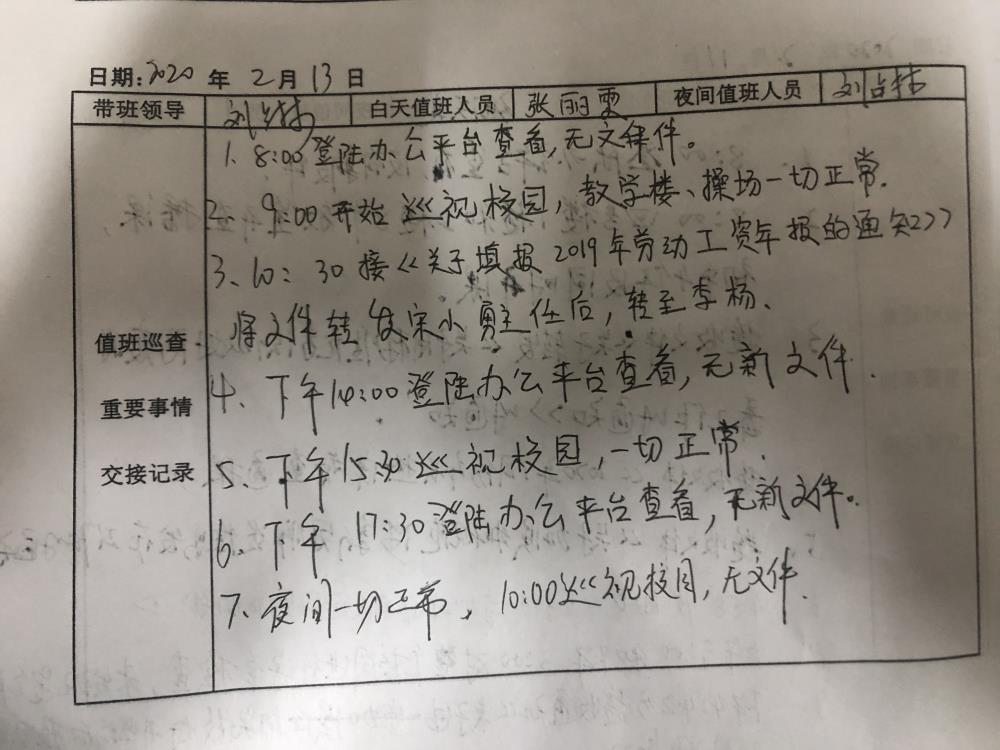 日期:2020 年 2 月 13 日
带班领导 刘占林 白天值班人员 张丽雯 夜间值班人员 刘占林
1、8:00登陆办公平台查看,无文件。
2、9:00开始巡视校园,教学楼、操场一切正常.
3、10:30接《关于填报2019年劳动工资年报的通知》
将文件转发宋小勇主任后,转至李杨、
值班巡查
4、下午14:00登陆办公平台查看,无新文件.
重要事情
5、下午15:30巡视校园,一切正常.
交接记录
6、下午17:30登陆办公平台查看,无新文件。
7、夜间一切正常,10:00巡视校园,无文件.